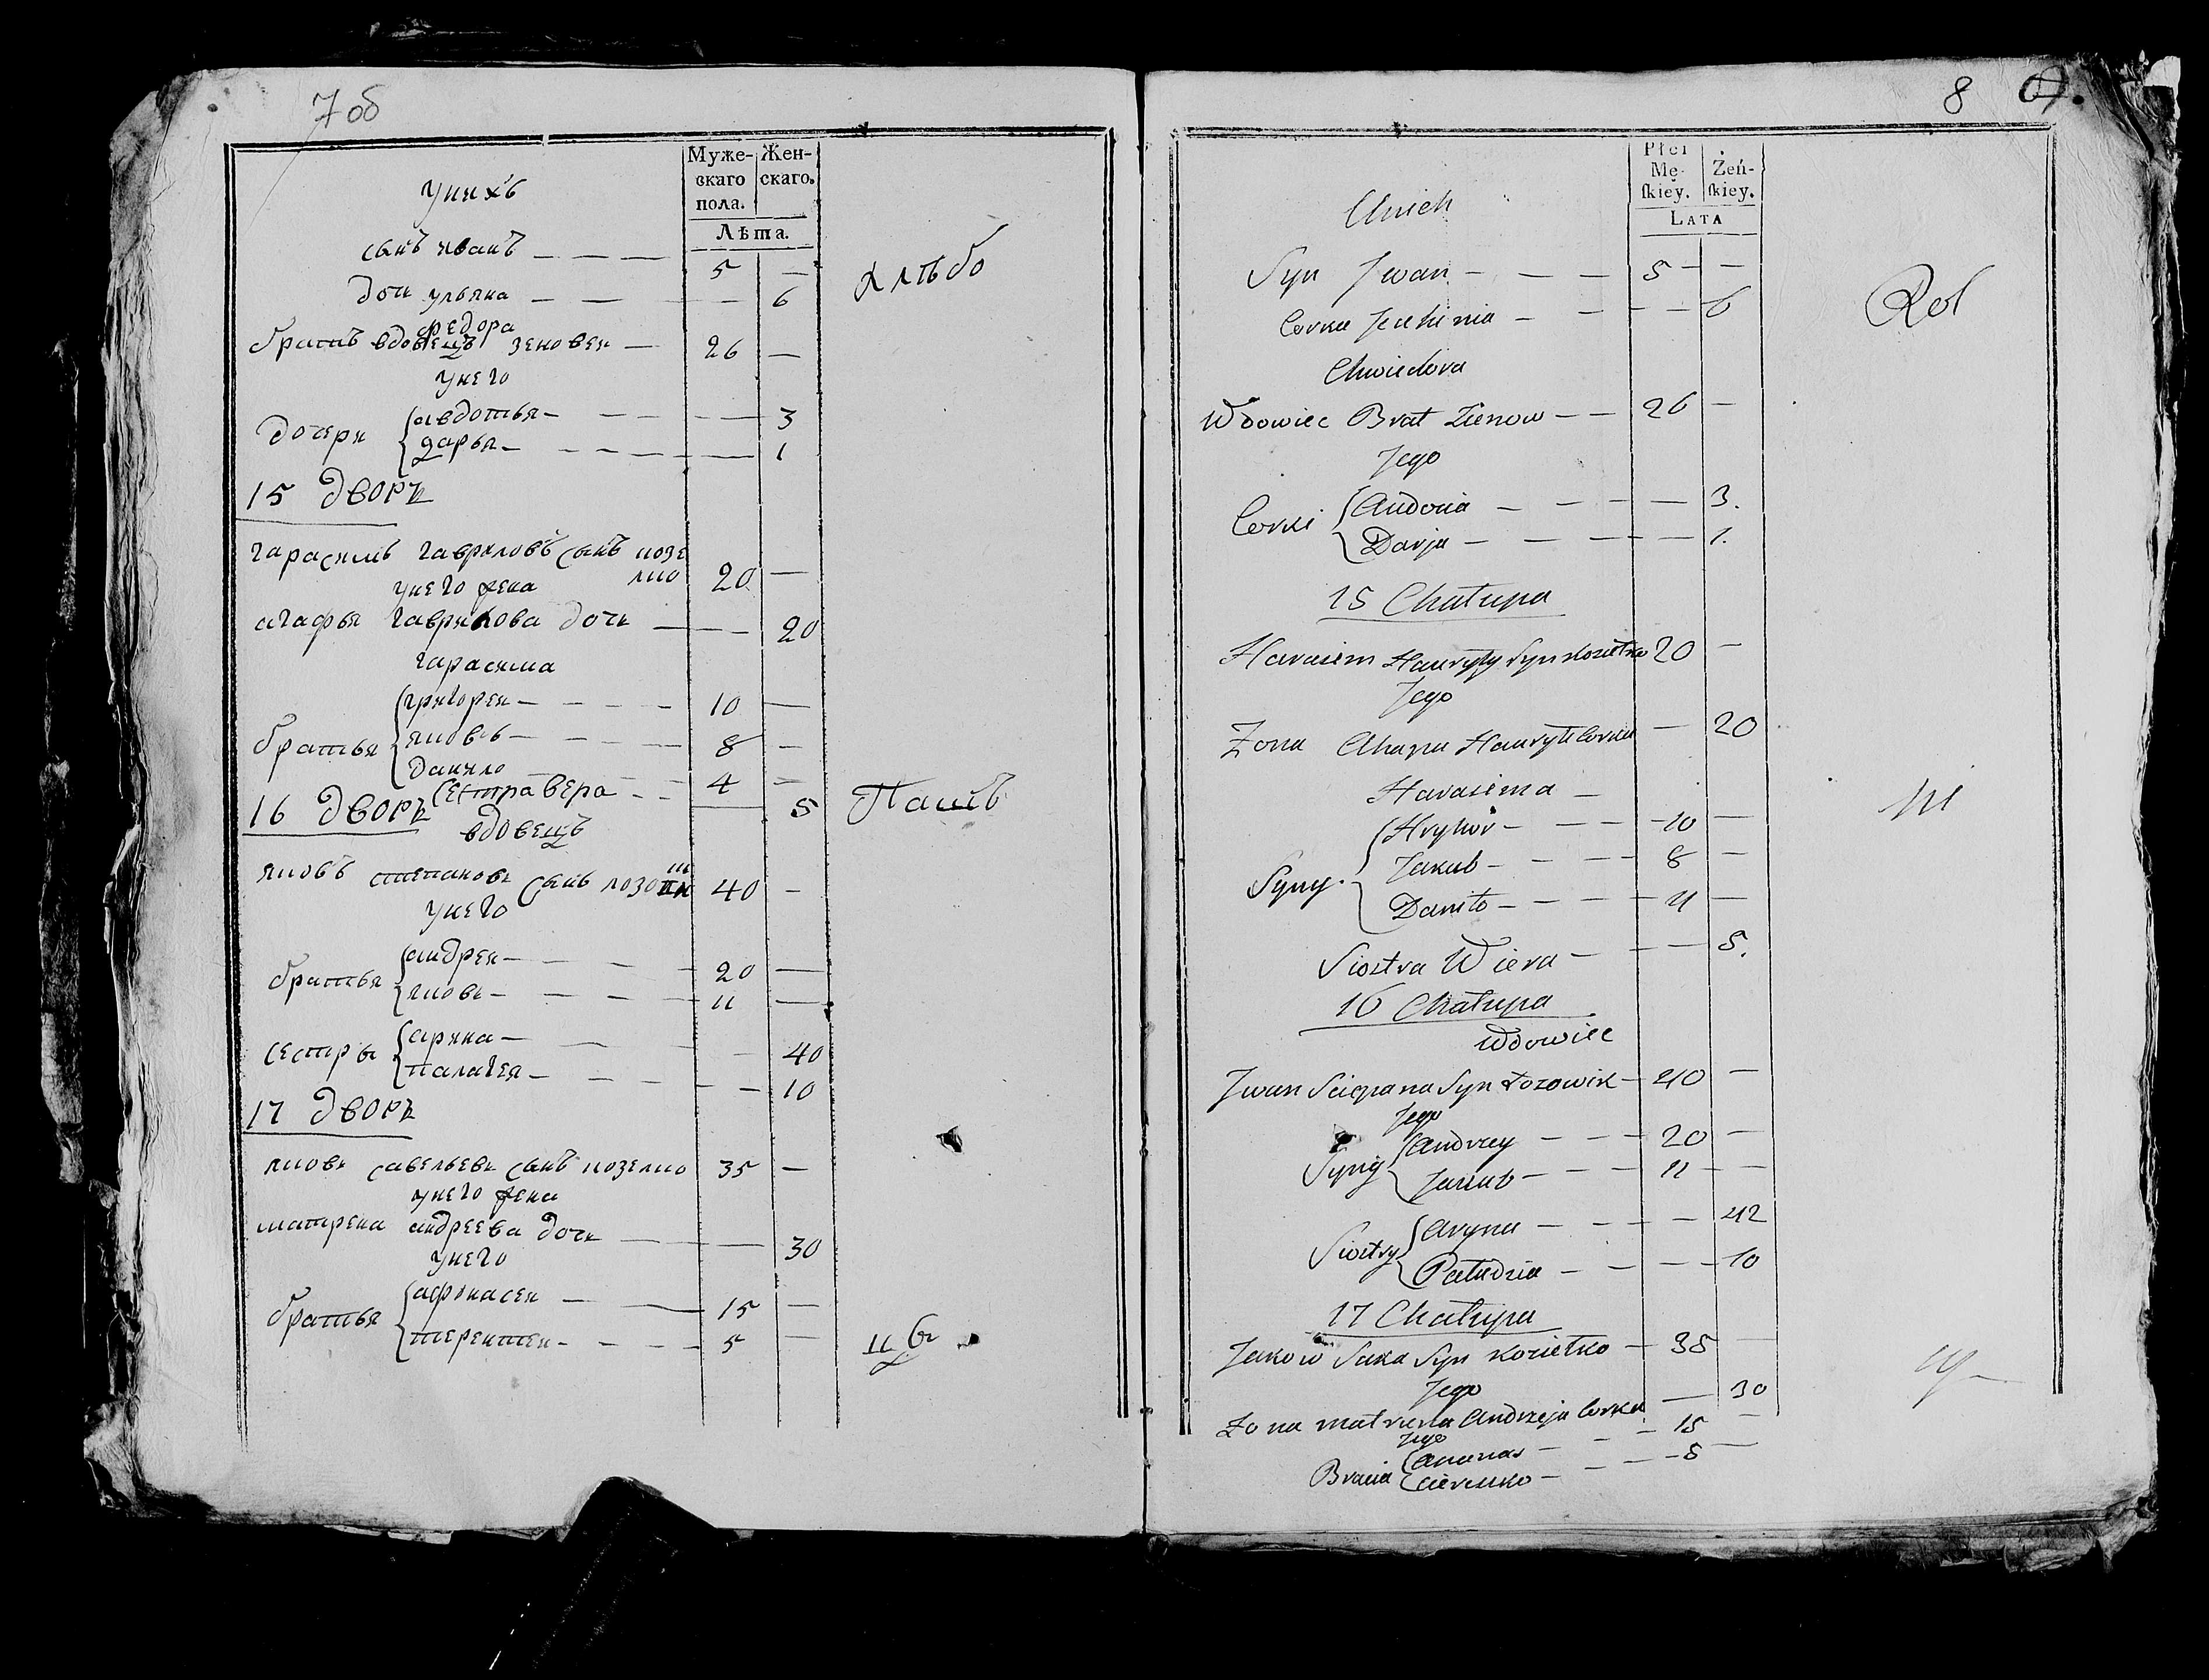 7 об
Муже- Жен-
скаго скаго.
пола.
Лѣта.
у нихъ
сынъ иванъ — — — 5 —
дочь ульяна — — — — 6
федора
братъ вдовецъ зеновеи — 26 —
у него
дочери { авдотья — — — — 3
дарья — — — — — 1
15 дворъ
гарасимъ гавриловъ сынъ козе
лко 20 —
у него жена
агафья гаврилова дочь — — 20
гарасима
братья { григореи — — — 10 —
яковъ — — — 8 —
данило — — 4 —
сестра вера — — 5
16 дворъ
вдовецъ
яковъ степановъ сынъ лозо 40 —
у него
братья { андреи — — — 20 —
яковъ — — — 11 —
сестры { арина — — — 40
палагея — — — — 10
17 дворъ
яковъ савельевъ сынъ козелко 35 —
у него жена
матрена андреева дочь — — 30
у него
братья { афонасеи — — 15 —
терентеи — — — 5 —
хлѣбо
Паш
цы
8
Płci
Mę- Żeń-
ſkiey. ſkiey.
LATA
Unich
Syn Jwan — — — 5 — —
Corka — — — — 6
Chwiedora
Wdowiec Brat Zienow — — 26 —
Jego
Corki { Audocia — — — — 3.
Darja — — — — — 1.
15 Chałupa
Harasim Hauryły Syn Koziełko 20 —
Jego
Zona Ahapa Hauryłi Corka — 20
Harasima —
Syny. { Hryhor — — — 10 —
Jakub — — — 8 —
Daniło — — — 4 —
Siostra Wiera — — — 5.
16 Chałupa
Wdowiec
Jwan Sciepana Syn Łozowik — 40 —
Jego
Syny { Andrzey — — — 20 —
Jakub — — — 11 — —
Siostry { Aryna — — — — 42
Pałudzia — — — — 10
17 Chałupa
Jakow Saka Syn Koziełko — 35 —
Jego
Zona Matruna Andrzeja Corka — 30
Jego
Bracia { Ananas — — — 15 —
Cierenko — — — — 5 —
Rol
ni
cy —